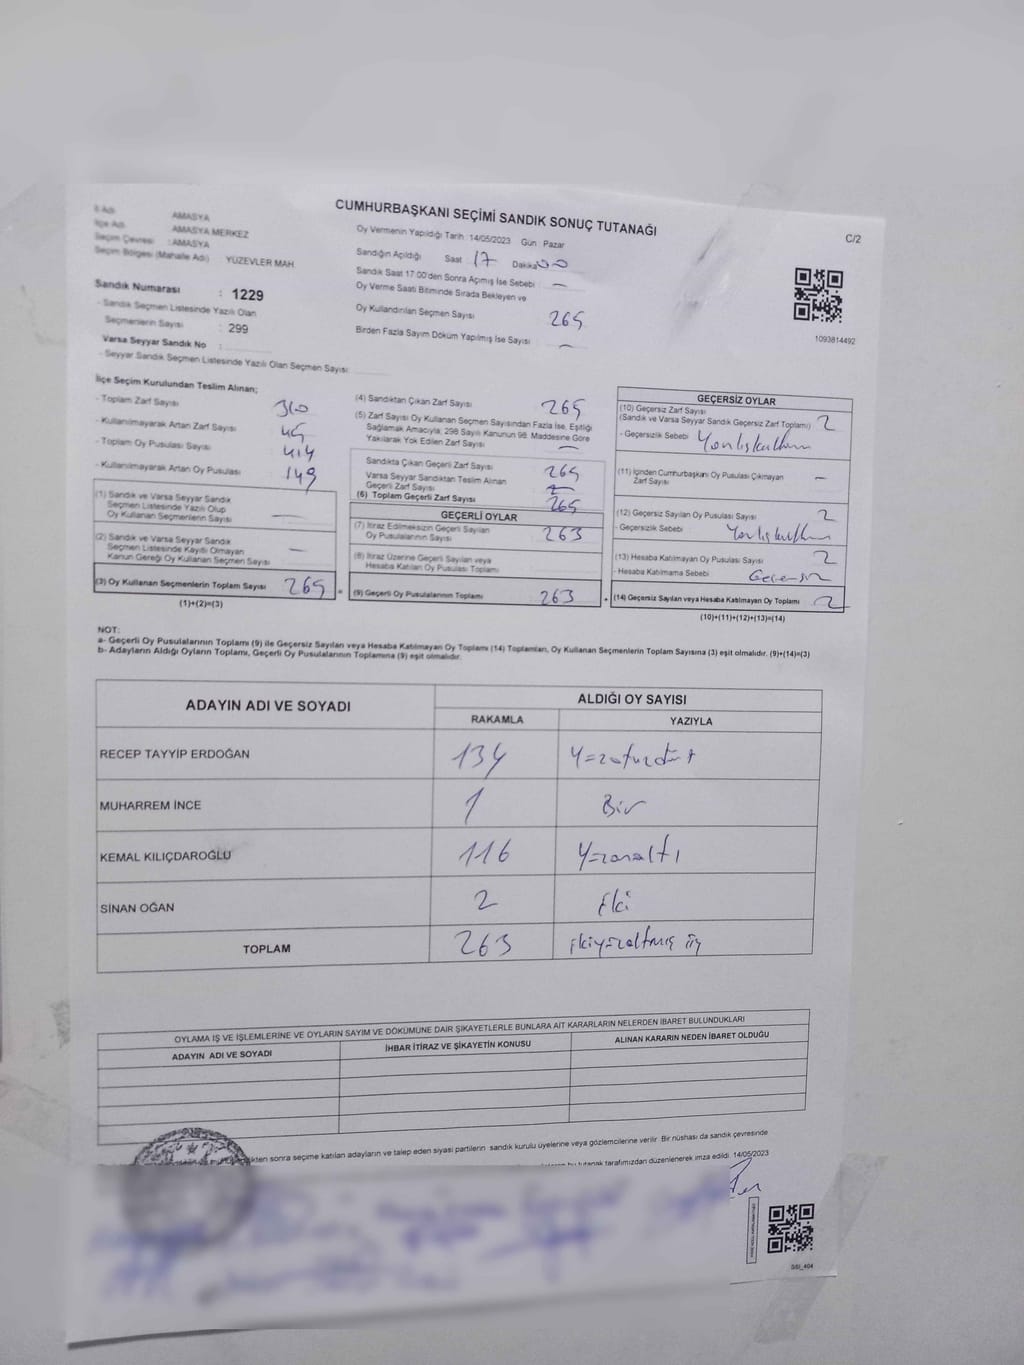 CUMHURBAŞKANI SEÇİMİ SANDIK SONUÇ TUTANAĞI
C/2
İl Adı AMASYA
İlçe Adı AMASYA MERKEZ
Seçim Çevresi : AMASYA
Seçim Bölgesi (Mahalle Adı) YÜZEVLER MAH.
Sandık Numarası : 1229
- Sandık Seçmen Listesinde Yazılı Olan
Seçmenlerin Sayısı : 299
Varsa Seyyar Sandık No :
- Seyyar Sandık Seçmen Listesinde Yazılı Olan Seçmen Sayısı:
Oy Vermenin Yapıldığı Tarih :14/05/2023 Gün Pazar
Sandığın Açıldığı Saat 17 Dakika 00
Sandık Saat 17:00'den Sonra Açımış İse Sebebi —
Oy Verme Saati Bitiminde Sırada Bekleyen ve
Oy Kullandırılan Seçmen Sayısı 265
Birden Fazla Sayım Döküm Yapılmış İse Sayısı —
1093814492
İlçe Seçim Kurulundan Teslim Alınan;
- Toplam Zarf Sayısı 310
- Kullanılmayarak Artan Zarf Sayısı 45
- Toplam Oy Pusulası Sayısı 414
- Kullanılmayarak Artan Oy Pusulası 149
(1) Sandık ve Varsa Seyyar Sandık
Seçmen Listesinde Yazılı Olup
Oy Kullanan Seçmenlerin Sayısı —
(2) Sandık ve Varsa Seyyar Sandık
Seçmen Listesinde Kayıtlı Olmayan
Kanun Gereği Oy Kullanan Seçmen Sayısı —
(3) Oy Kullanan Seçmenlerin Toplam Sayısı 265 =
(1)+(2)=(3)
(4) Sandıktan Çıkan Zarf Sayısı 265
(5) Zarf Sayısı Oy Kullanan Seçmen Sayısından Fazla İse, Eşitliği
Sağlamak Amacıyla, 298 Sayılı Kanunun 98. Maddesine Göre
Yakılarak Yok Edilen Zarf Sayısı —
Sandıkta Çıkan Geçerli Zarf Sayısı 265
Varsa Seyyar Sandıktan Teslim Alınan
Geçerli Zarf Sayısı
(6) Toplam Geçerli Zarf Sayısı 265
GEÇERLİ OYLAR
(7) İtiraz Edilmeksizin Geçerli Sayılan
Oy Pusulalarının Sayısı 263
(8) İtiraz Üzerine Geçerli Sayılan veya
Hesaba Katılan Oy Pusulası Toplamı
(9) Geçerli Oy Pusulalarının Toplamı 263 +
GEÇERSİZ OYLAR
(10) Geçersiz Zarf Sayısı
(Sandık ve Varsa Seyyar Sandık Geçersiz Zarf Toplamı) 2
- Geçersizlik Sebebi Yanlış kullanım
(11) İçinden Cumhurbaşkanı Oy Pusulası Çıkmayan
Zarf Sayısı —
(12) Geçersiz Sayılan Oy Pusulası Sayısı 2
- Geçersizlik Sebebi Yanlış kullanım
(13) Hesaba Katılmayan Oy Pusulası Sayısı 2
- Hesaba Katılmama Sebebi Geçersiz
(14) Geçersiz Sayılan veya Hesaba Katılmayan Oy Toplamı 2
(10)+(11)+(12)+(13)=(14)
NOT:
a- Geçerli Oy Pusulalarının Toplamı (9) ile Geçersiz Sayılan veya Hesaba Katılmayan Oy Toplamı (14) Toplamları, Oy Kullanan Seçmenlerin Toplam Sayısına (3) eşit olmalıdır. (9)+(14)=(3)
b- Adayların Aldığı Oyların Toplamı, Geçerli Oy Pusulalarının Toplamına (9) eşit olmalıdır.
ADAYIN ADI VE SOYADI ALDIĞI OY SAYISI
RAKAMLA YAZIYLA
RECEP TAYYİP ERDOĞAN 134 Yüzotuzdört
MUHARREM İNCE 1 Bir
KEMAL KILIÇDAROĞLU 116 Yüzonaltı
SİNAN OĞAN 2 İki
TOPLAM 263 ikiyüzaltmış üç
OYLAMA İŞ VE İŞLEMLERİNE VE OYLARIN SAYIM VE DÖKÜMÜNE DAİR ŞİKAYETLERLE BUNLARA AİT KARARLARIN NELERDEN İBARET BULUNDUKLARI
ADAYIN ADI VE SOYADI İHBAR İTİRAZ VE ŞİKAYETİN KONUSU ALINAN KARARIN NEDEN İBARET OLDUĞU
sonra seçime katılan adayların ve talep eden siyasi partilerin sandık kurulu üyelerine veya gözlemcilerine verilir. Bir nüshası da sandık çevresinde
bu tutanak tarafımızdan düzenlenerek imza edildi. 14/05/2023
SSI_404